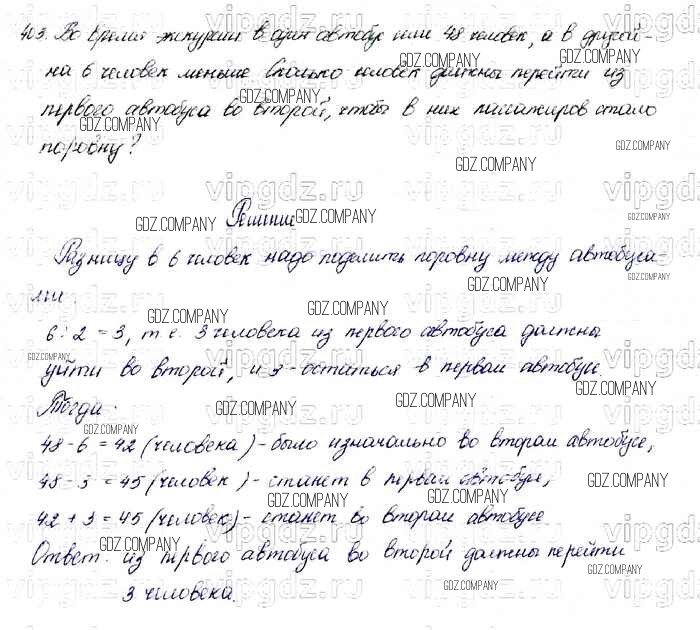 403. Во время экскурсии в один автобус сели 48 человек, а в другой -
на 6 человек меньше. Сколько человек должны перейти из
первого автобуса во второй, чтобы в них пассажиров стало
поровну?
Решение
Разницу в 6 человек надо поделить поровну между автобуса-
ми.
6 : 2 = 3, т.е. 3 человека из первого автобуса должны
уйти во второй, и 3 - остаться в первом автобусе.
Тогда:
48 - 6 = 42 (человека) - было изначально во втором автобусе,
48 - 3 = 45 (человек) - станет в первом автобусе,
42 + 3 = 45 (человек) - станет во втором автобусе
Ответ: из первого автобуса во второй должны перейти
3 человека.